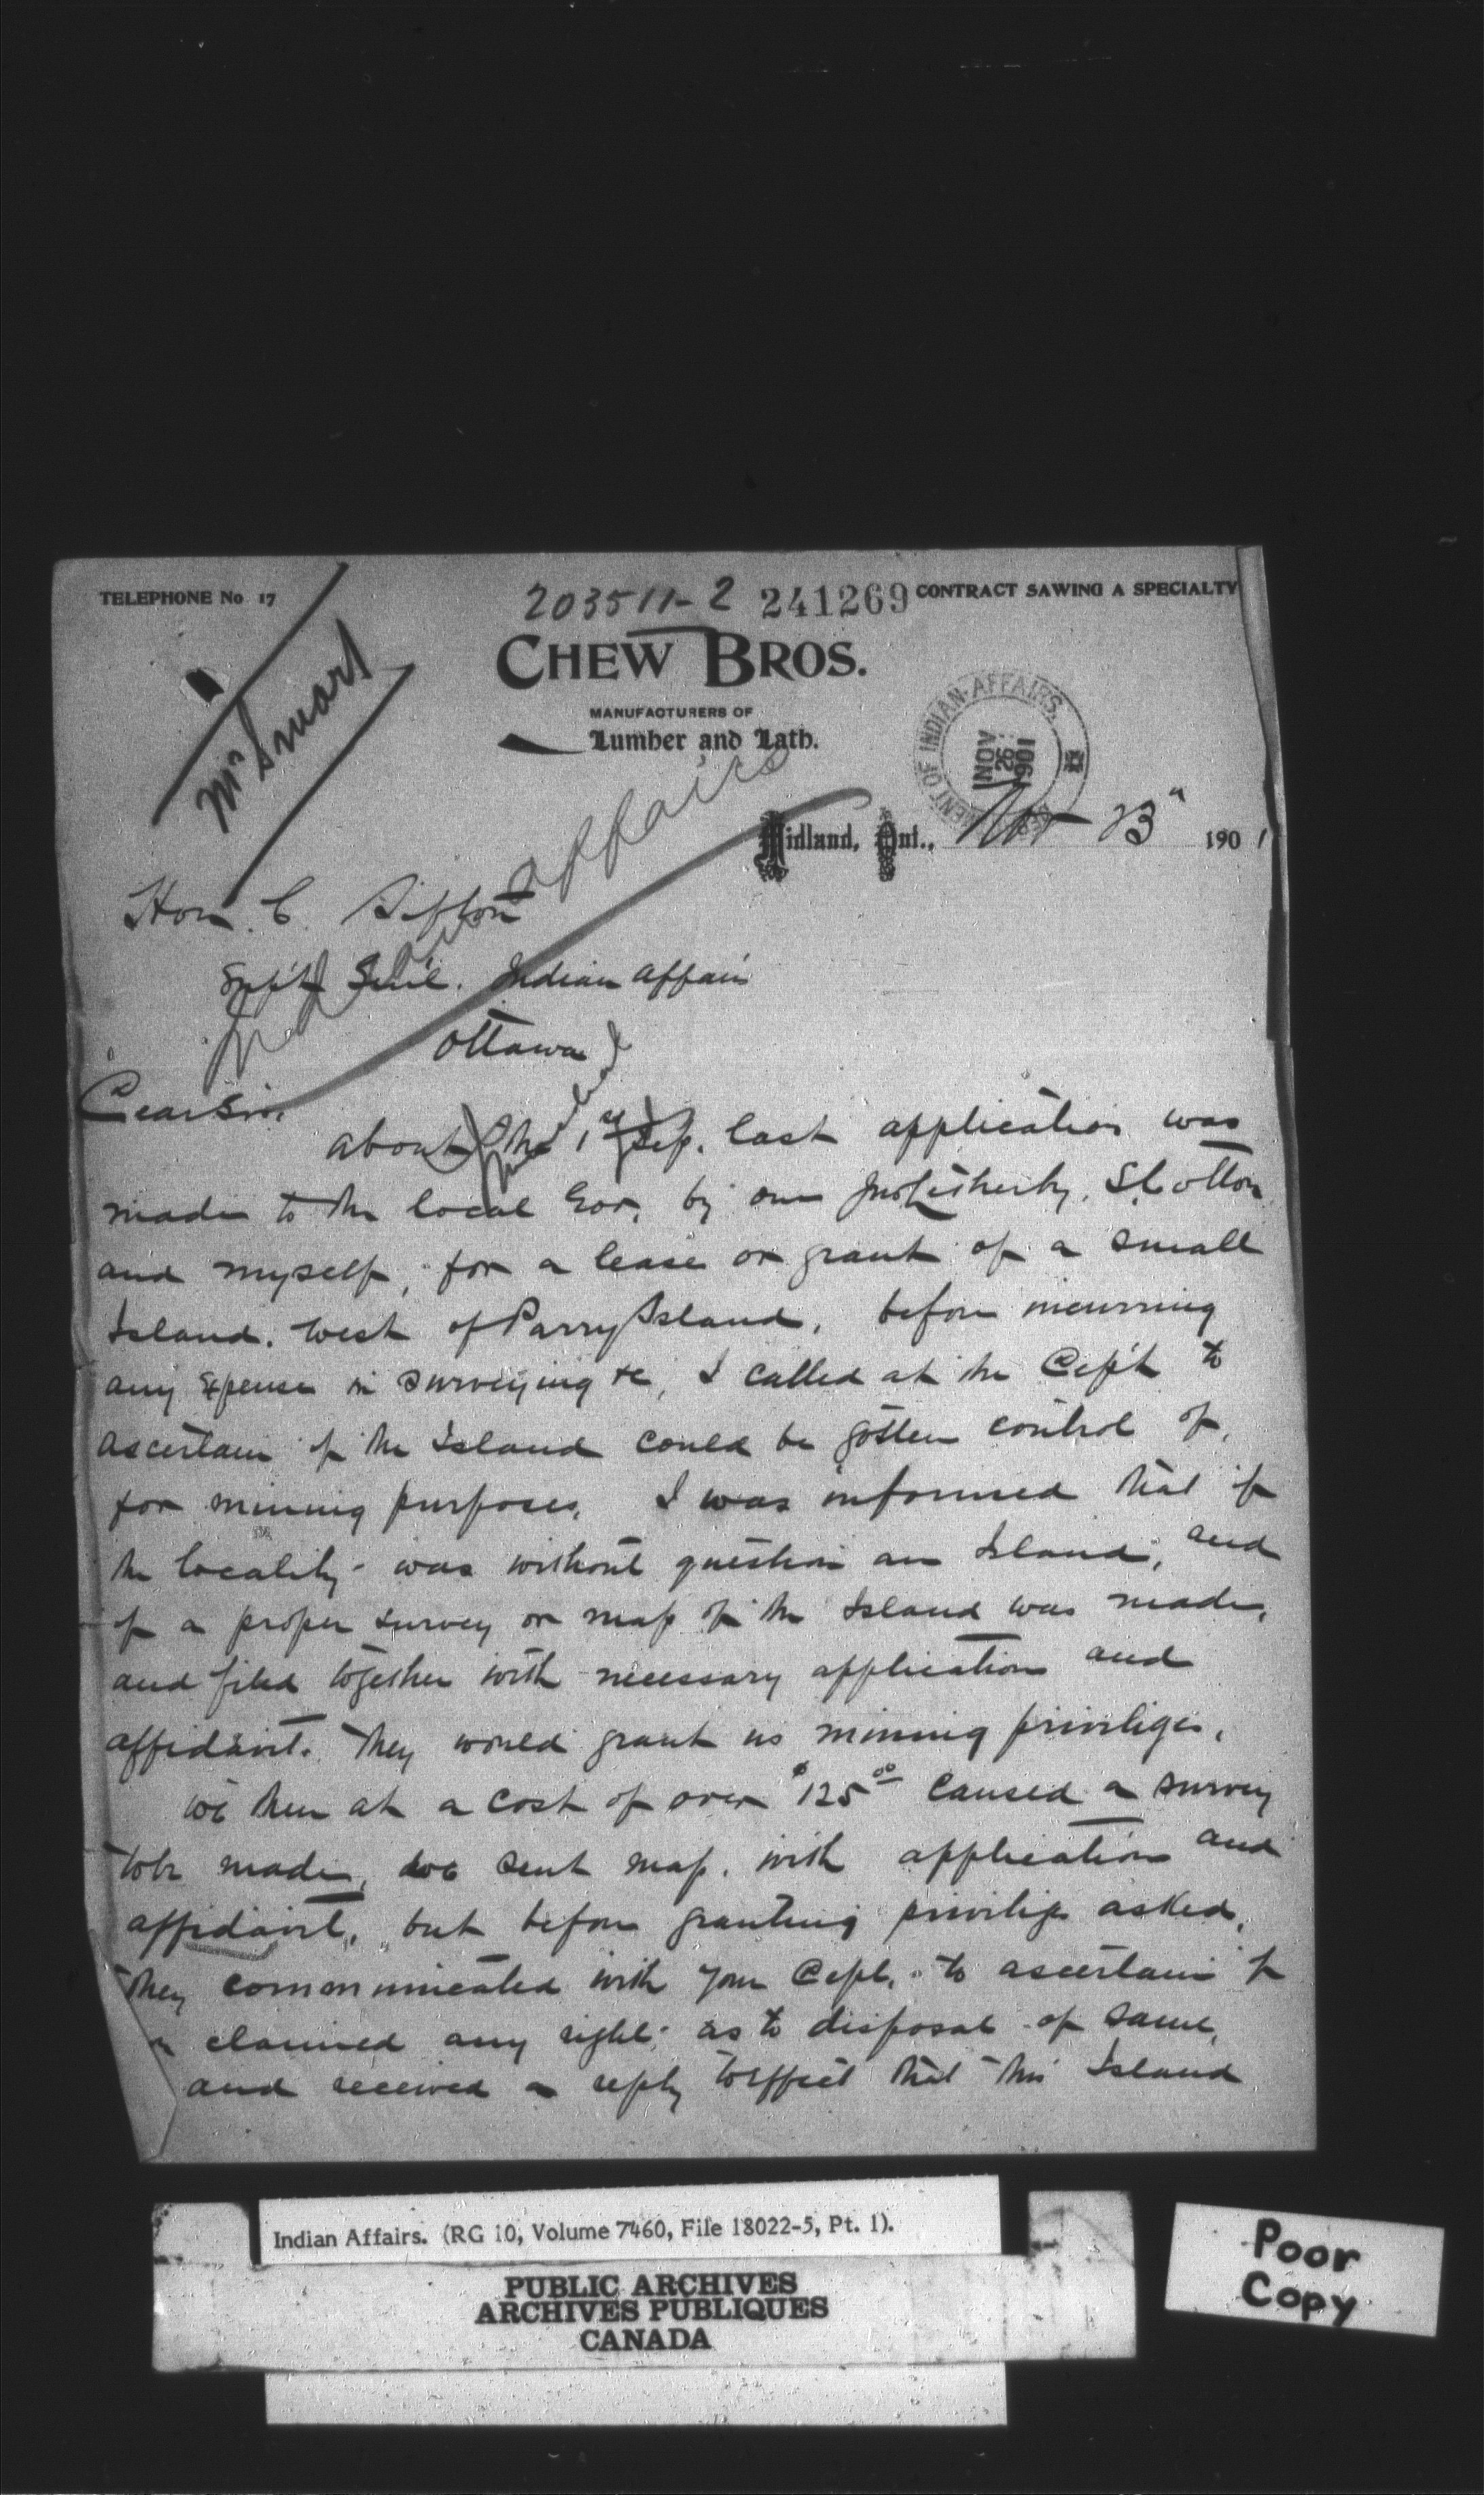 TELEPHONE No 17
203511-2 241269 CONTRACT SAWING A SPECIALTY
CHEW BROS.
MANUFACTURERS OF
Lumber and Lath.
Mr Smart
DEPARTMENT OF INDIAN AFFAIRS.
NOV
26
1901
Midland, Ont., Nov 23" 1901
Hon. C. Sifton
Supt Genl. Indian Affairs
Ottawa
Dear Sir.
about the 1st Sep. last application was
made to the local Gov, by one Jno Letherby, S Cotton
and myself, for a lease or grant of a small
Island. West of Parry Island, before incurring
any Expense in Surveying &c, I called at the Dep't to
ascertain if the Island could be gotten control of,
for mining purposes, I was informed that if
the locality was without question an Island, and
if a proper survey or map of the Island was made,
and filed together with necessary application and
affidavit. They would grant us mining privileges.
We then at a cost of over $125.00 caused a survey
to be made, we sent map, with application and
affidavit, but before granting privilige asked,
they communicated with your Dept, to ascertain if
claimed any right as to disposal of same,
and received a reply to effect that this Island
Indian Affairs. (RG 10, Volume 7460, File 18022-5, Pt. 1).
PUBLIC ARCHIVES
ARCHIVES PUBLIQUES
CANADA
Poor
Copy